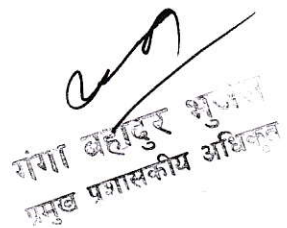 गंगा बहादुर भुजेल
प्रमुख प्रशासकीय अधिकृत